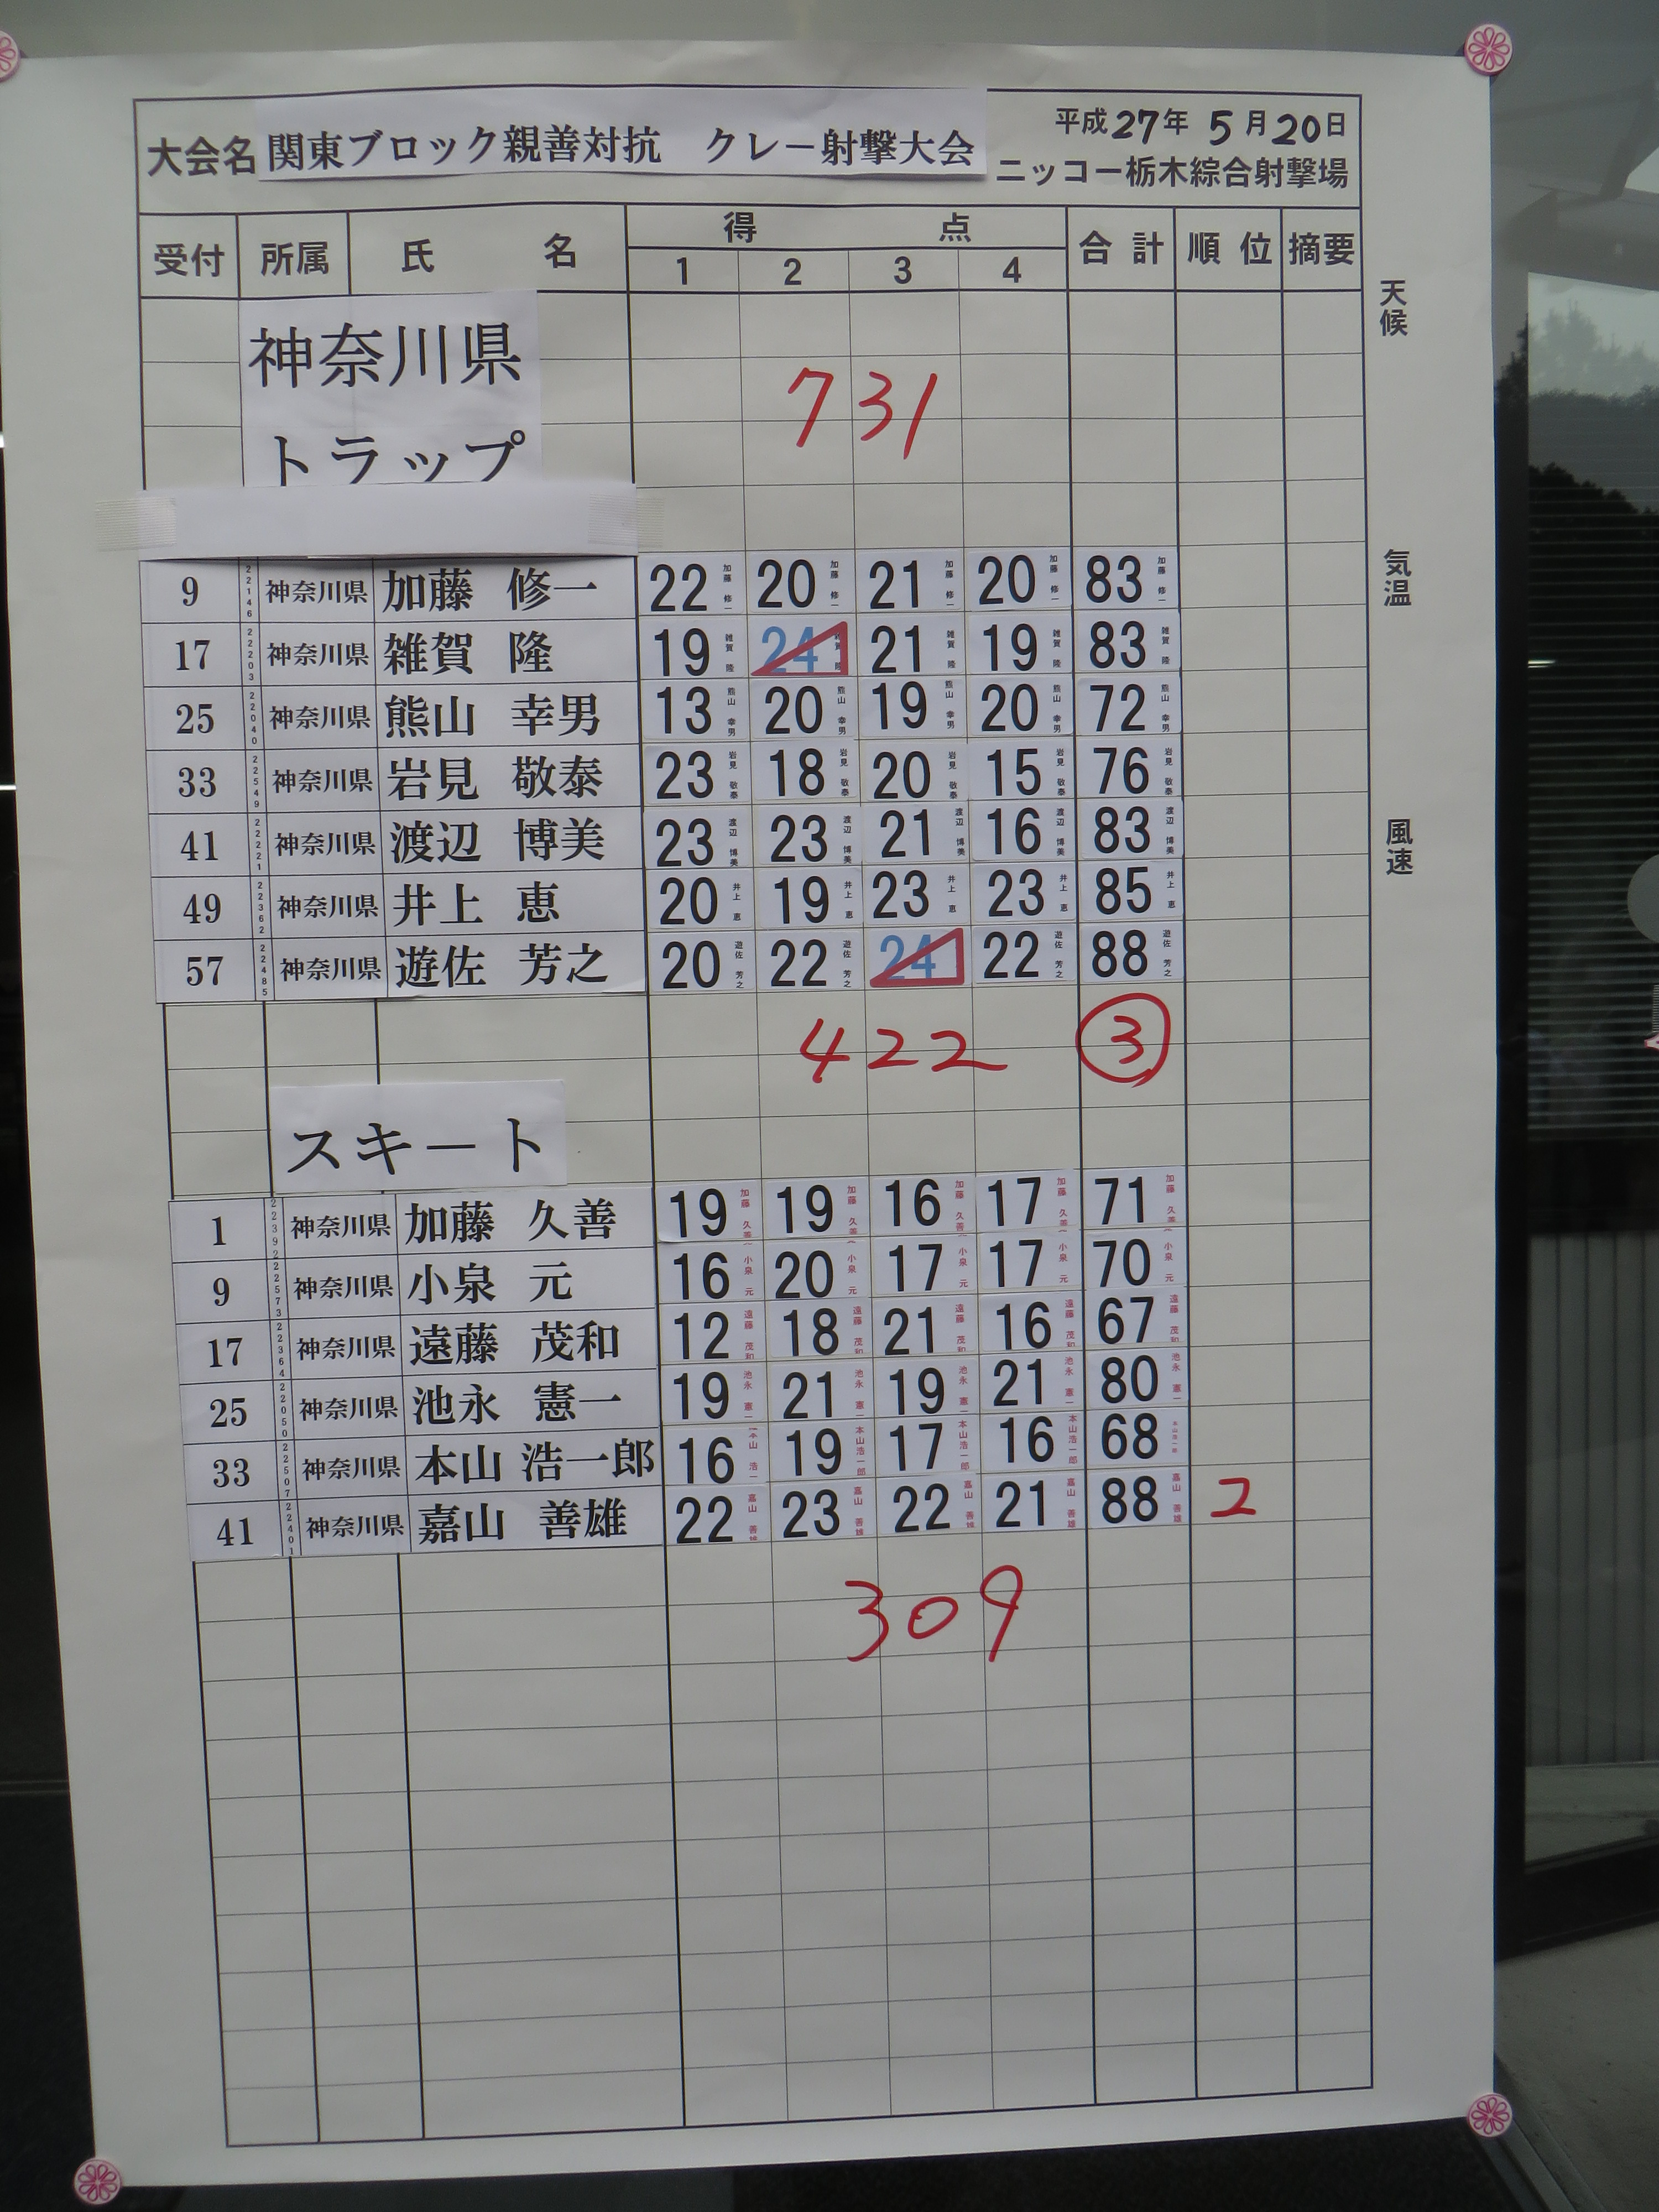 平成27年 5月20日
大会名 関東ブロック親善対抗 クレー射撃大会
ニッコー栃木綜合射撃場
受付 所属 氏 名 得 点 合計 順位 摘要
1 2 3 4
天候
神奈川県
731
トラップ
気温
9 22146 神奈川県 加藤 修一 22 20 21 20 83
17 22203 神奈川県 雑賀 隆 19 24 21 19 83
25 22040 神奈川県 熊山 幸男 13 20 19 20 72
33 22549 神奈川県 岩見 敬泰 23 18 20 15 76
風速
41 22221 神奈川県 渡辺 博美 23 23 21 16 83
49 22362 神奈川県 井上 恵 20 19 23 23 85
57 22485 神奈川県 遊佐 芳之 20 22 24 22 88
422 ③
スキート
1 22392 神奈川県 加藤 久善 19 19 16 17 71
9 22573 神奈川県 小泉 元 16 20 17 17 70
17 22364 神奈川県 遠藤 茂和 12 18 21 16 67
25 22050 神奈川県 池永 憲一 19 21 19 21 80
33 22507 神奈川県 本山 浩一郎 16 19 17 16 68
41 22401 神奈川県 嘉山 善雄 22 23 22 21 88 2
309